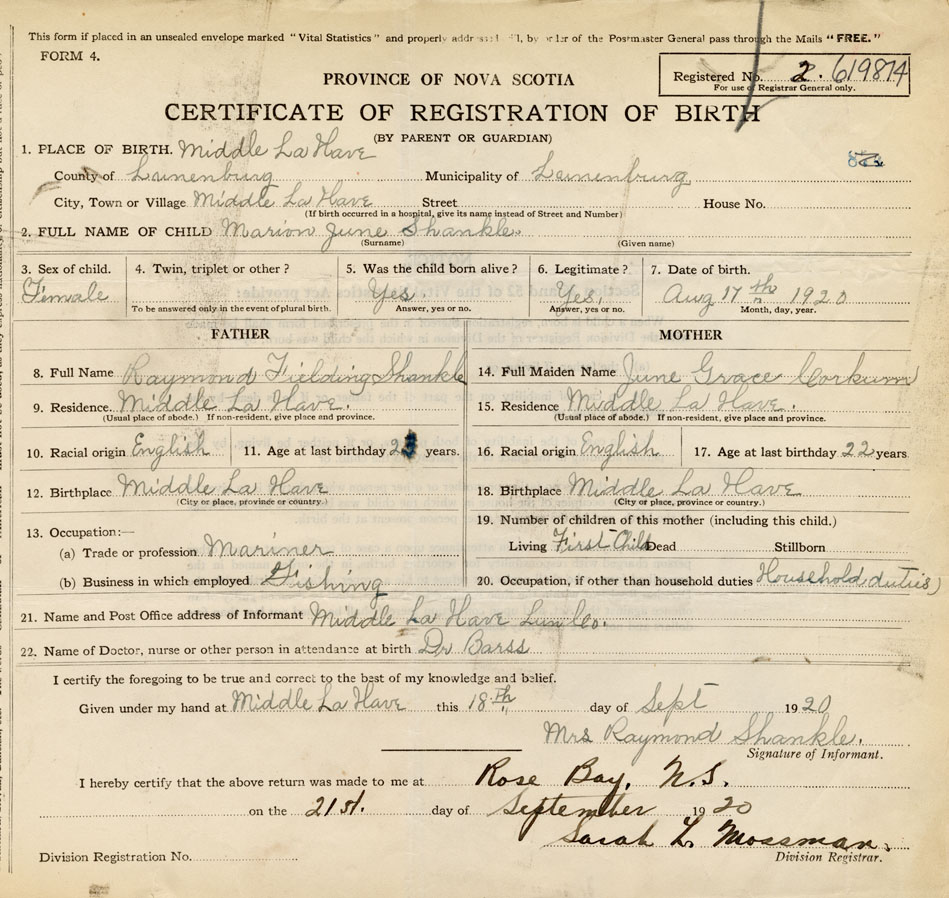 This form if placed in an unsealed envelope marked "Vital Statistics" and properly addressed will, by order of the Postmaster General pass through the Mails "FREE."
FORM 4.
PROVINCE OF NOVA SCOTIA
Registered No. 2. 619874
For use of Registrar General only.
CERTIFICATE OF REGISTRATION OF BIRTH
(BY PARENT OR GUARDIAN)
1. PLACE OF BIRTH. Middle La Have
County of Lunenburg Municipality of Lunenburg
City, Town or Village Middle La Have Street House No.
(If birth occurred in a hospital, give its name instead of Street and Number)
2. FULL NAME OF CHILD Marion June Shankle.
(Surname) (Given name)
3. Sex of child. 4. Twin, triplet or other? 5. Was the child born alive? 6. Legitimate? 7. Date of birth.
Female Yes. Yes, Aug 17th 1920
To be answered only in the event of plural birth. Answer, yes or no. Answer, yes or no. Month, day, year.
FATHER MOTHER
8. Full Name Raymond Fielding Shankle 14. Full Maiden Name June Grace Corkum
9. Residence. Middle La Have. 15. Residence Middle La Have.
(Usual place of abode.) If non-resident, give place and province. (Usual place of abode.) If non-resident, give place and province.
10. Racial origin English 11. Age at last birthday 23 years. 16. Racial origin English 17. Age at last birthday 22 years
12. Birthplace Middle La Have 18. Birthplace Middle La Have
(City or place, province or country.) (City or place, province or country.)
13. Occupation:— 19. Number of children of this mother (including this child.)
(a) Trade or profession Mariner Living First Child Dead Stillborn
(b) Business in which employed Fishing 20. Occupation, if other than household duties Household duties)
21. Name and Post Office address of Informant Middle La Have Lun Co.
22. Name of Doctor, nurse or other person in attendance at birth Dr Barss
I certify the foregoing to be true and correct to the best of my knowledge and belief.
Given under my hand at Middle La Have this 18th day of Sept 1920
Mrs Raymond Shankle.
Signature of Informant.
I hereby certify that the above return was made to me at Rose Bay, N.S.
on the 21st. day of September 1920
Sarah L. Mossman.
Division Registration No. Division Registrar.